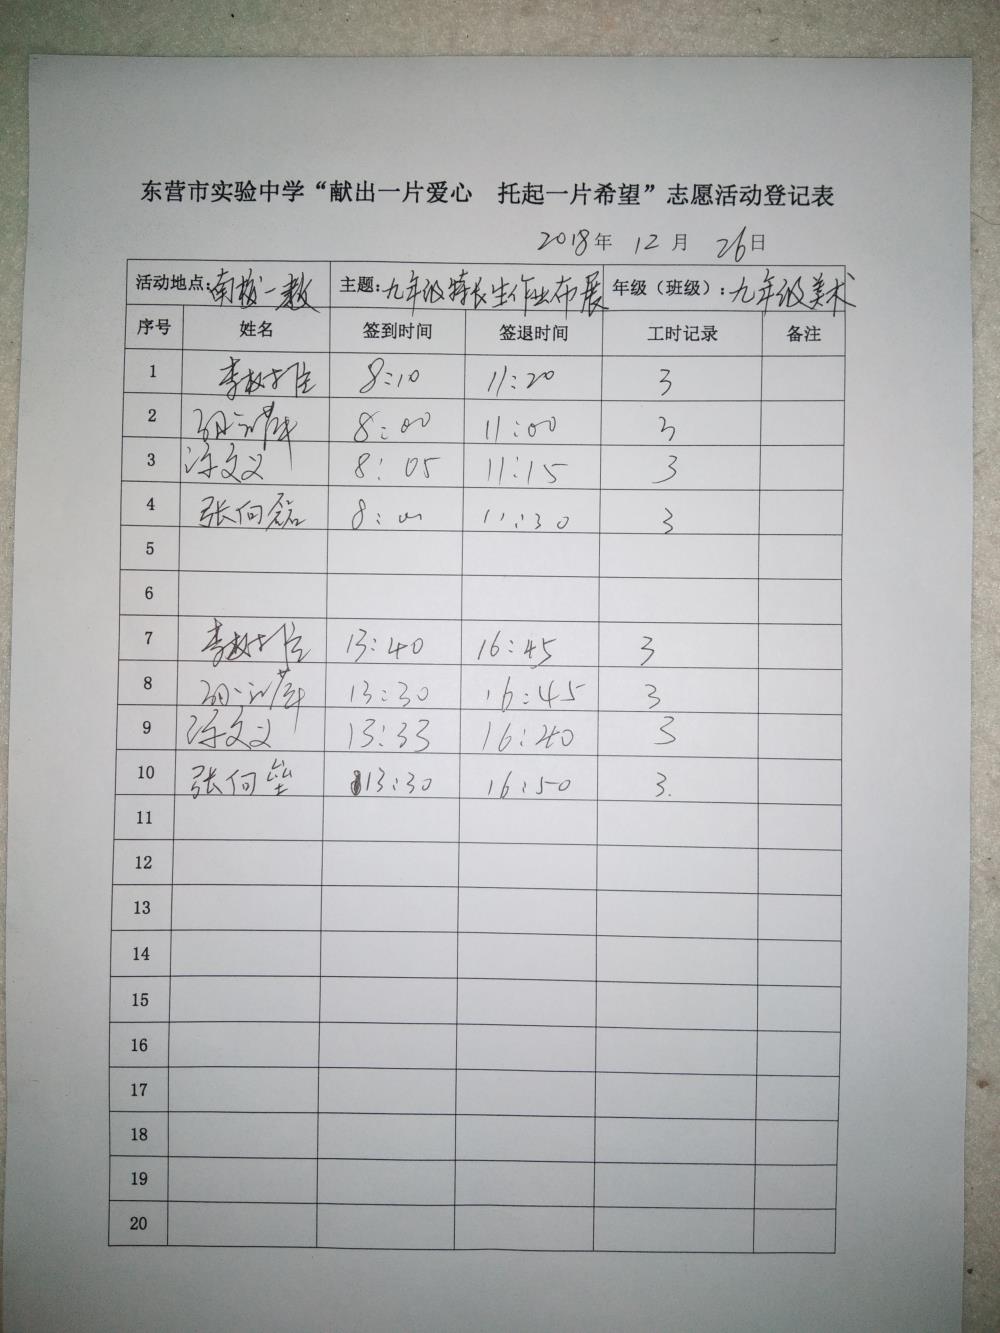 东营市实验中学“献出一片爱心 托起一片希望”志愿活动登记表
2018年 12月 26日
活动地点:南校一教 主题:九年级特长生作业布展 年级（班级）:九年级美术
序号 姓名 签到时间 签退时间 工时记录 备注
1 8:10 11:20 3
2 8:00 11:00 3
3 8:05 11:15 3
4 张向磊 8:00 11:30 3
5
6
7 13:40 16:45 3
8 13:30 16:45 3
9 13:33 16:40 3
10 张向垒 13:30 16:50 3.
11
12
13
14
15
16
17
18
19
20